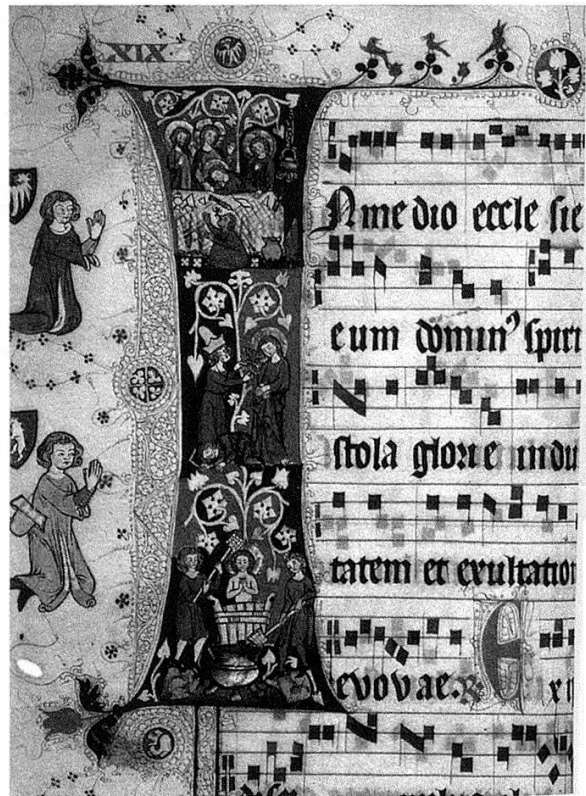 XIX
In medio eccle sie
eum domin⁹ spiri
stola glorie indu
tatem et exultation
evovae. E